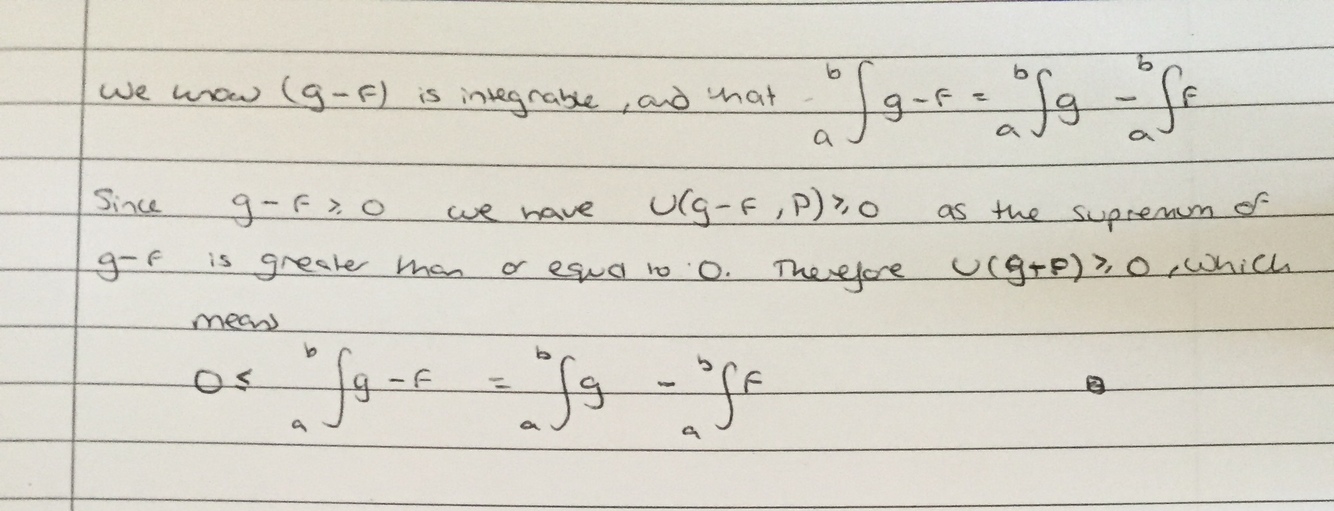 We know (g-f) is integrable, and that ₐᵇ∫g-f = ₐᵇ∫g - ₐᵇ∫f
Since g-f ≥ 0 we have U(g-f, P) ≥ 0 as the supremum of
g-f is greater than or equal to 0. Therefore U(g+f) ≥ 0, which
means
0 ≤ ₐᵇ∫g-f = ₐᵇ∫g - ₐᵇ∫f